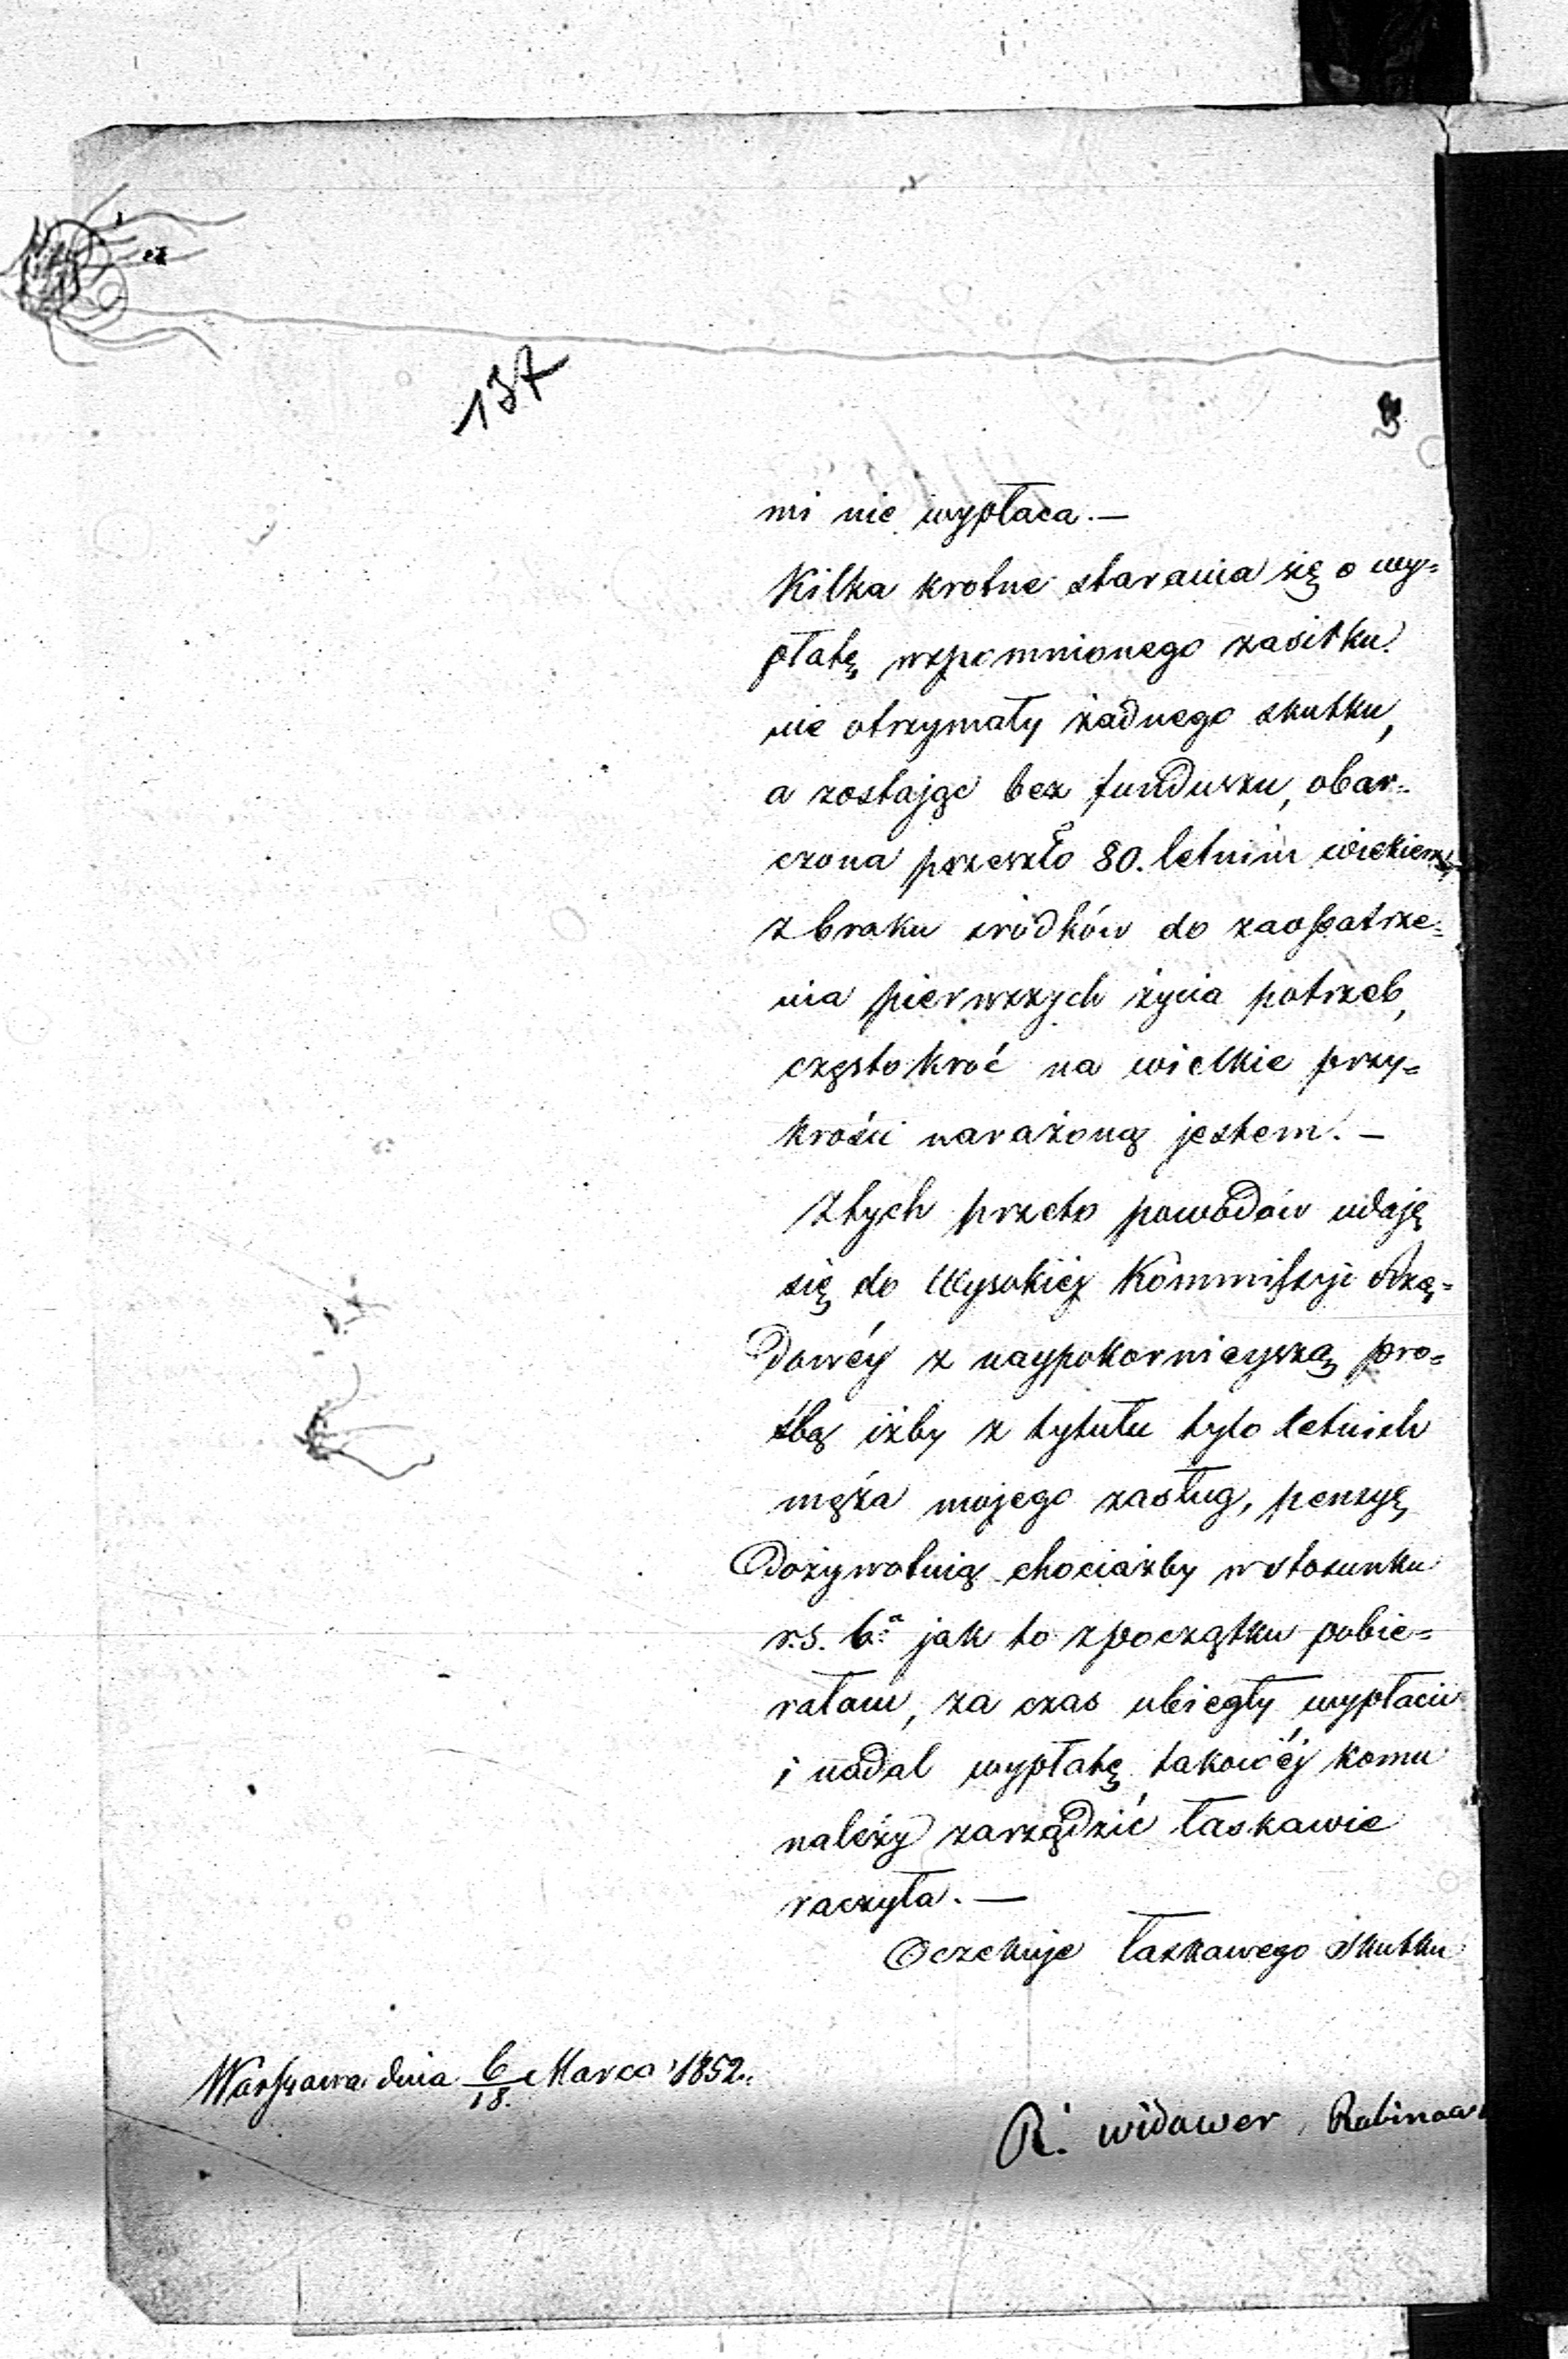 137
mi nie wypłaca.—
Kilka krotne starania się o wy=
płatę wspomnionego zasiłku
nie otrzymały żadnego skutku,
a zostając bez funduszu, obar=
czona przeszło 80. letnim wiekiem,
z braku sródków do zaopatrze=
nia pierwszych życia potrzeb,
częstokroć na wielkie przy=
krości narażoną jestem.—
Z tych przeto powodów udaję
się do Wysokiéj Kommissyi Rzą=
dowéy z naypokornieyszą pro=
śbą iżby z tytułu tylo letnich
męża mojego zasług, pensyę
dożywotnią chociażby w stosunku
r.s. 6.a jak to z początku pobie=
rałam, za czas ubiegły wypłacić
i nadal wypłatę takowéj komu
należy zarządzić łaskawie
raczyła.—
Oczekuje łaskawego skutku
Warszawa dnia 6/18. Marca 1852.
R. widower, Rabinow